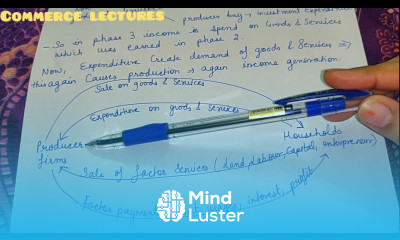 COMMERCE LECTURES
producers buy → Investment Expenditure
- So in phase 3 income is spend on Goods & Services
which was earned in phase 2.
Now, Expenditure Create demand of goods & Services ⇒
this again Causes production → again income generation.
Sale on goods & Services
Expenditure on goods & Services
Producer Households
firms
Sale of factor Services (Land, Labour, Capital, entrepreneur)
Factor payments wages, interest, profit
Mind
Luster